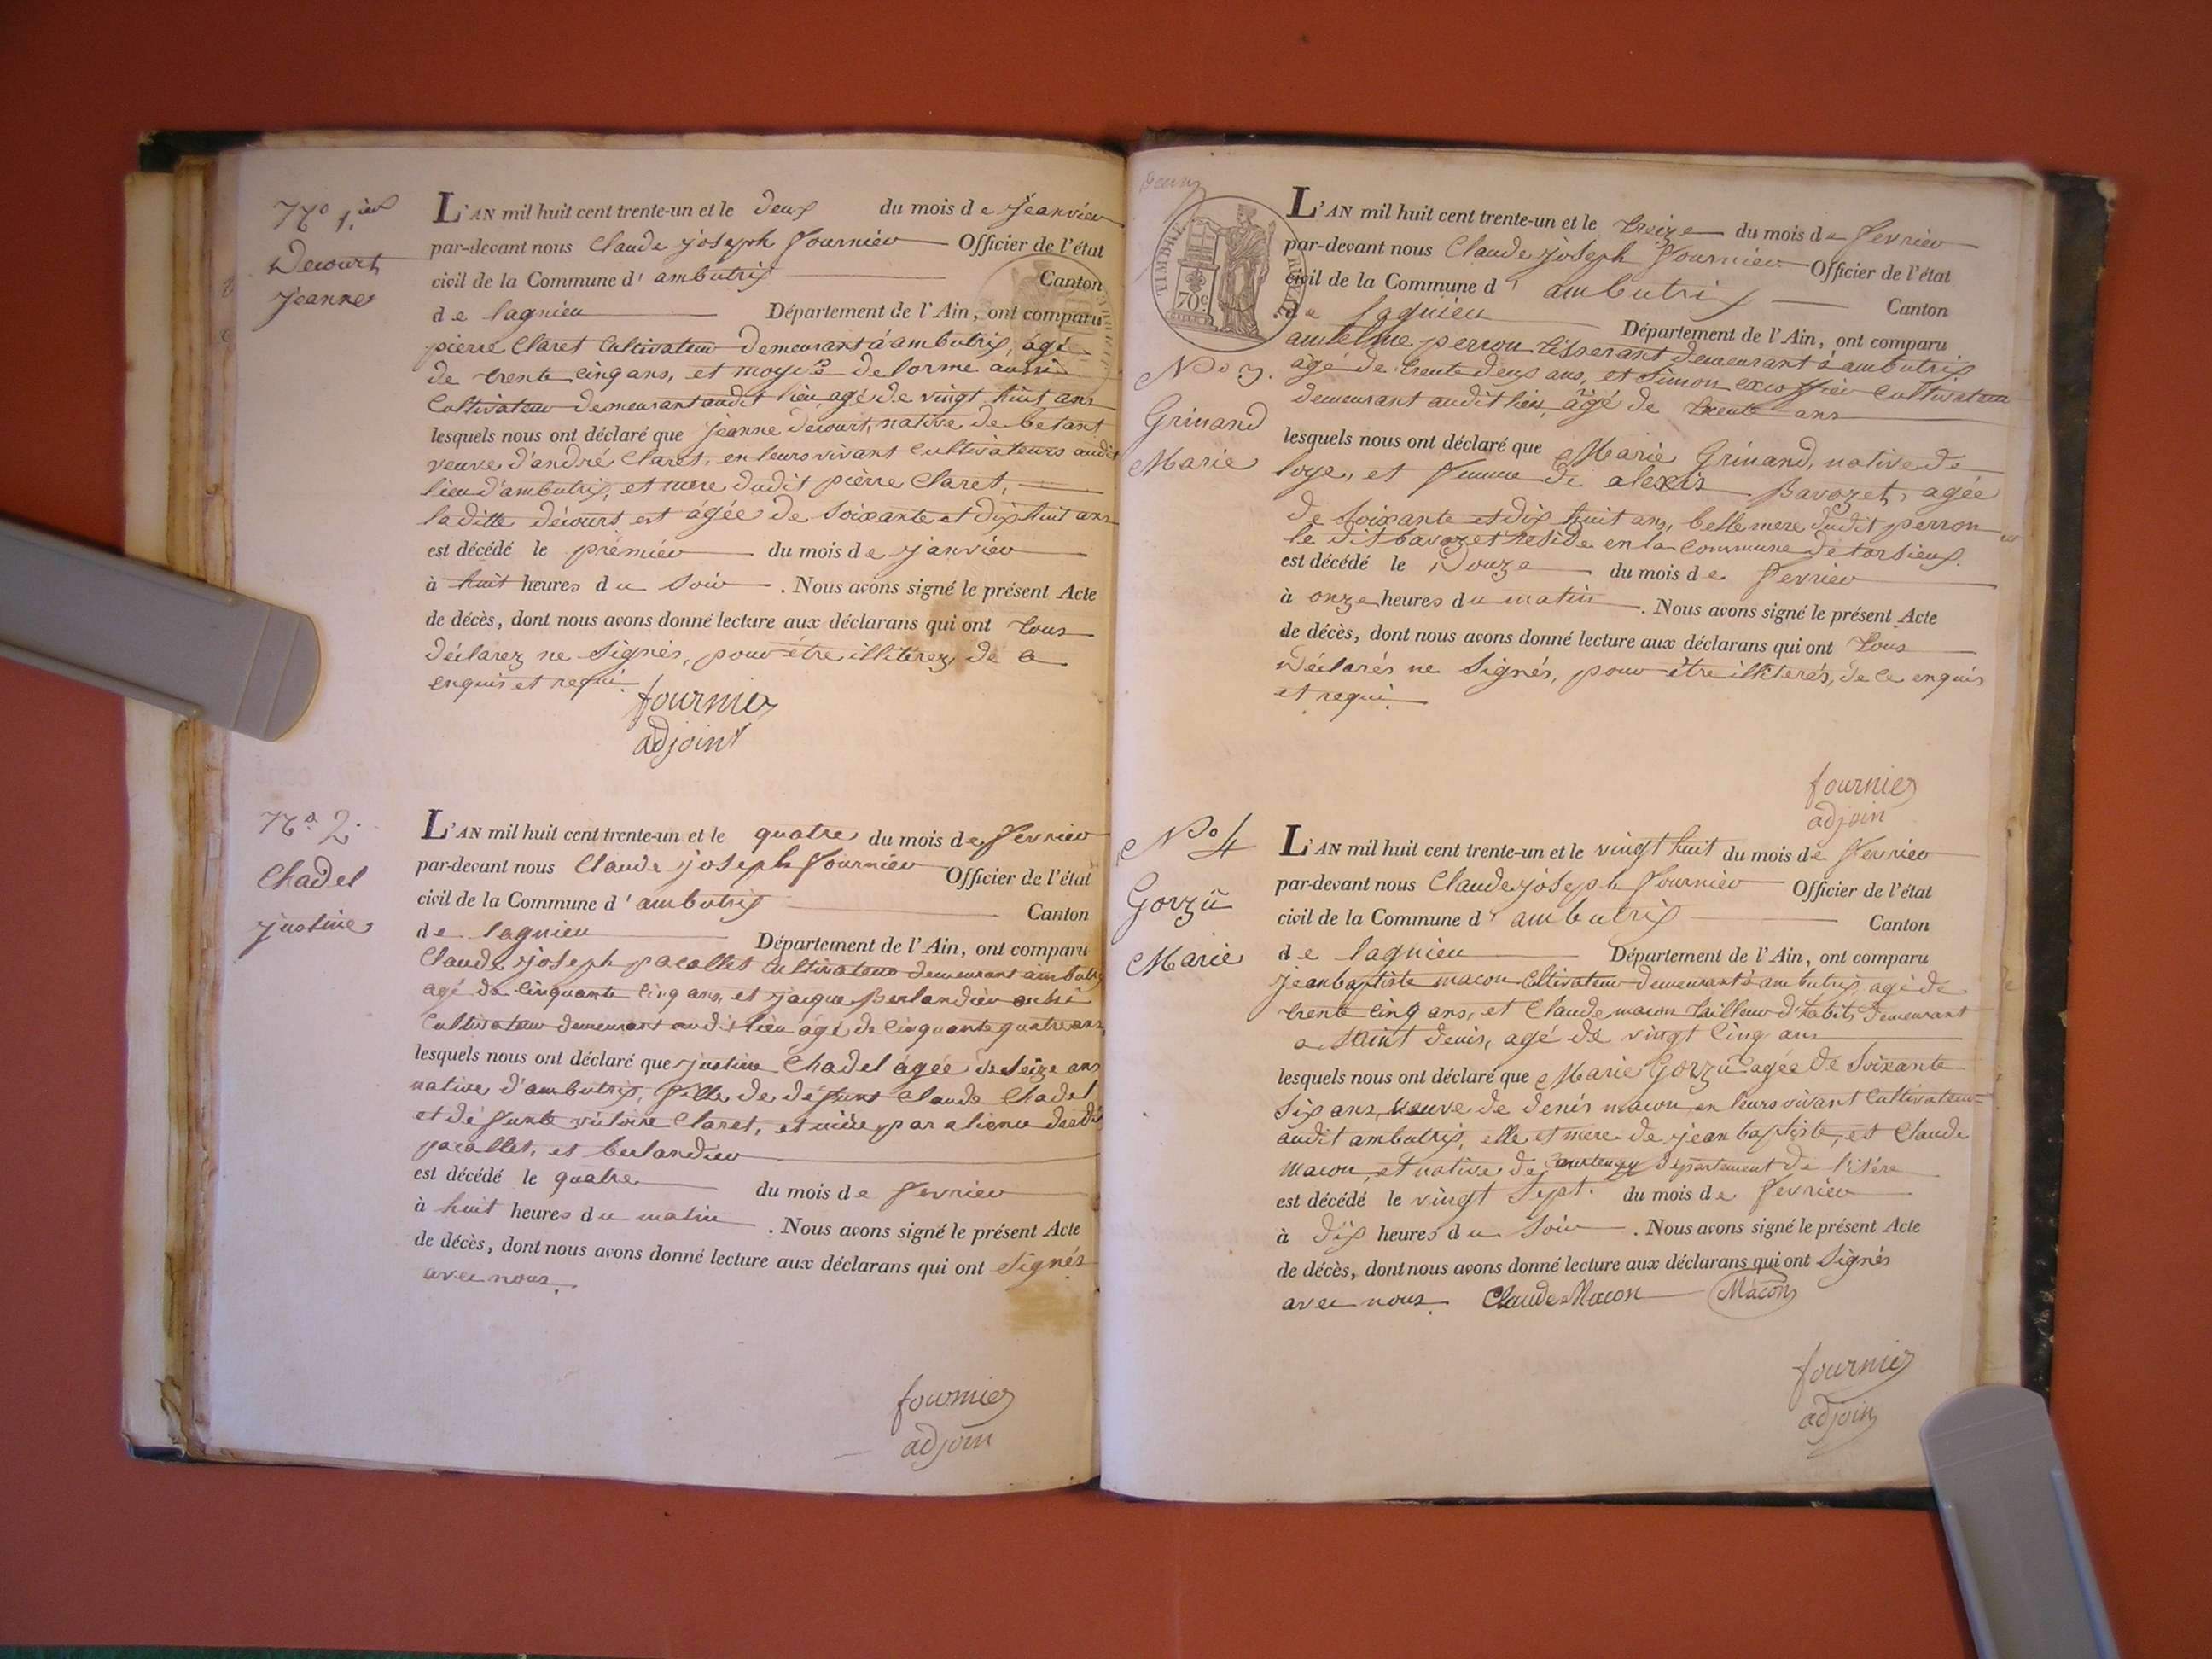 No 1.ier
Decourt
jeanne
L'AN mil huit cent trente-un et le deux du mois de jeanvier
par-devant nous Claude joseph fournier Officier de l'état
civil de la Commune d'ambutrix Canton
de lagnieu Département de l'Ain, ont comparu
pierre Claret Cultivateur demeurant à ambutrix, âgé
de trente cinq ans, et moyse delorme aussi
Cultivateur demeurant audit lieu, agé de vingt huit ans
lesquels nous ont déclaré que jeanne decourt, native de betant
veuve d'andré Claret, en leurs vivant Cultivateurs audit
lieu d'ambutrix, et mere dudit pierre Claret,
laditte décourt est âgée de soixante et dix huit ans
est décédé le prémier du mois de janvier
à huit heures du soir. Nous avons signé le présent Acte
de décès, dont nous avons donné lecture aux déclarans qui ont tous
déclarez ne signés, pour être illiterez, de ce
enquis et requi.
fournier
adjoint
No. 2.
Chadel
justine
L'AN mil huit cent trente-un et le quatre du mois de fevrier
par-devant nous Claude joseph fournier Officier de l'état
civil de la Commune d'ambutrix Canton
de lagnieu Département de l'Ain, ont comparu
Claude joseph pacallet Cultivateur demeurant ambutrix
agé de Cinquante cinq ans, et jacque Berlandier aussi
Cultivateur demeurant audit lieu âgé de Cinquante quatre ans,
lesquels nous ont déclaré que justine Chadel âgée de seize ans
native d'ambutrix, fille de défunt Claude Chadel
et défunte victoire Claret, et niéce par alience desdit
pacallet, et berlandier
est décédé le quatre du mois de fevrier
à huit heures du matin. Nous avons signé le présent Acte
de décès, dont nous avons donné lecture aux déclarans qui ont signés
avec nous.
fournier
adjoin
TIMBRE ROYAL
70c
No 3.
Grinand
Marie
L'AN mil huit cent trente-un et le treize du mois de fevrier
par-devant nous Claude joseph fournier Officier de l'état
civil de la Commune d'ambutrix Canton
de lagnieu Département de l'Ain, ont comparu
antelme perron tisserant demeurant à ambutrix
âgé de trente deux ans, et Simon Cultivateur
demeurant audit lieu, âgé de trente ans
lesquels nous ont déclaré que Marie Grinand, native de
loye, et femme de alexis Bavozet, agée
de soixante et dix huit ans, belle mere dudit perron
le dit bavozet réside en la commune de torsieux.
est décédé le Douze du mois de fevrier
à onze heures du matin. Nous avons signé le présent Acte
de décès, dont nous avons donné lecture aux déclarans qui ont tous
déclarés ne signés, pour être illiterés, de ce enquis
et requi.
fournier
adjoin
No 4
Gorzü
Marie
L'AN mil huit cent trente-un et le vingt huit du mois de fevrier
par-devant nous Claude joseph fournier Officier de l'état
civil de la Commune d'ambutrix Canton
de lagnieu Département de l'Ain, ont comparu
jean baptiste macon Cultivateur demeurant à ambutrix, agé de
trente cinq ans, et Claude macon tailleur d'habits demeurant
a saint denis, agé de vingt cinq ans
lesquels nous ont déclaré que Marie Gorzü agée de soixante
six ans, veuve de denis macon, en leurs vivant Cultivateur
audit ambutrix, elle est mere de jean baptiste, et Claude
macon, et native de Courtenay département de l'isére
est décédé le vingt sept. du mois de fevrier
à dix heures du soir. Nous avons signé le présent Acte
de décès, dont nous avons donné lecture aux déclarans qui ont signés
avec nous. Claude Macon Macon
fournier
adjoin